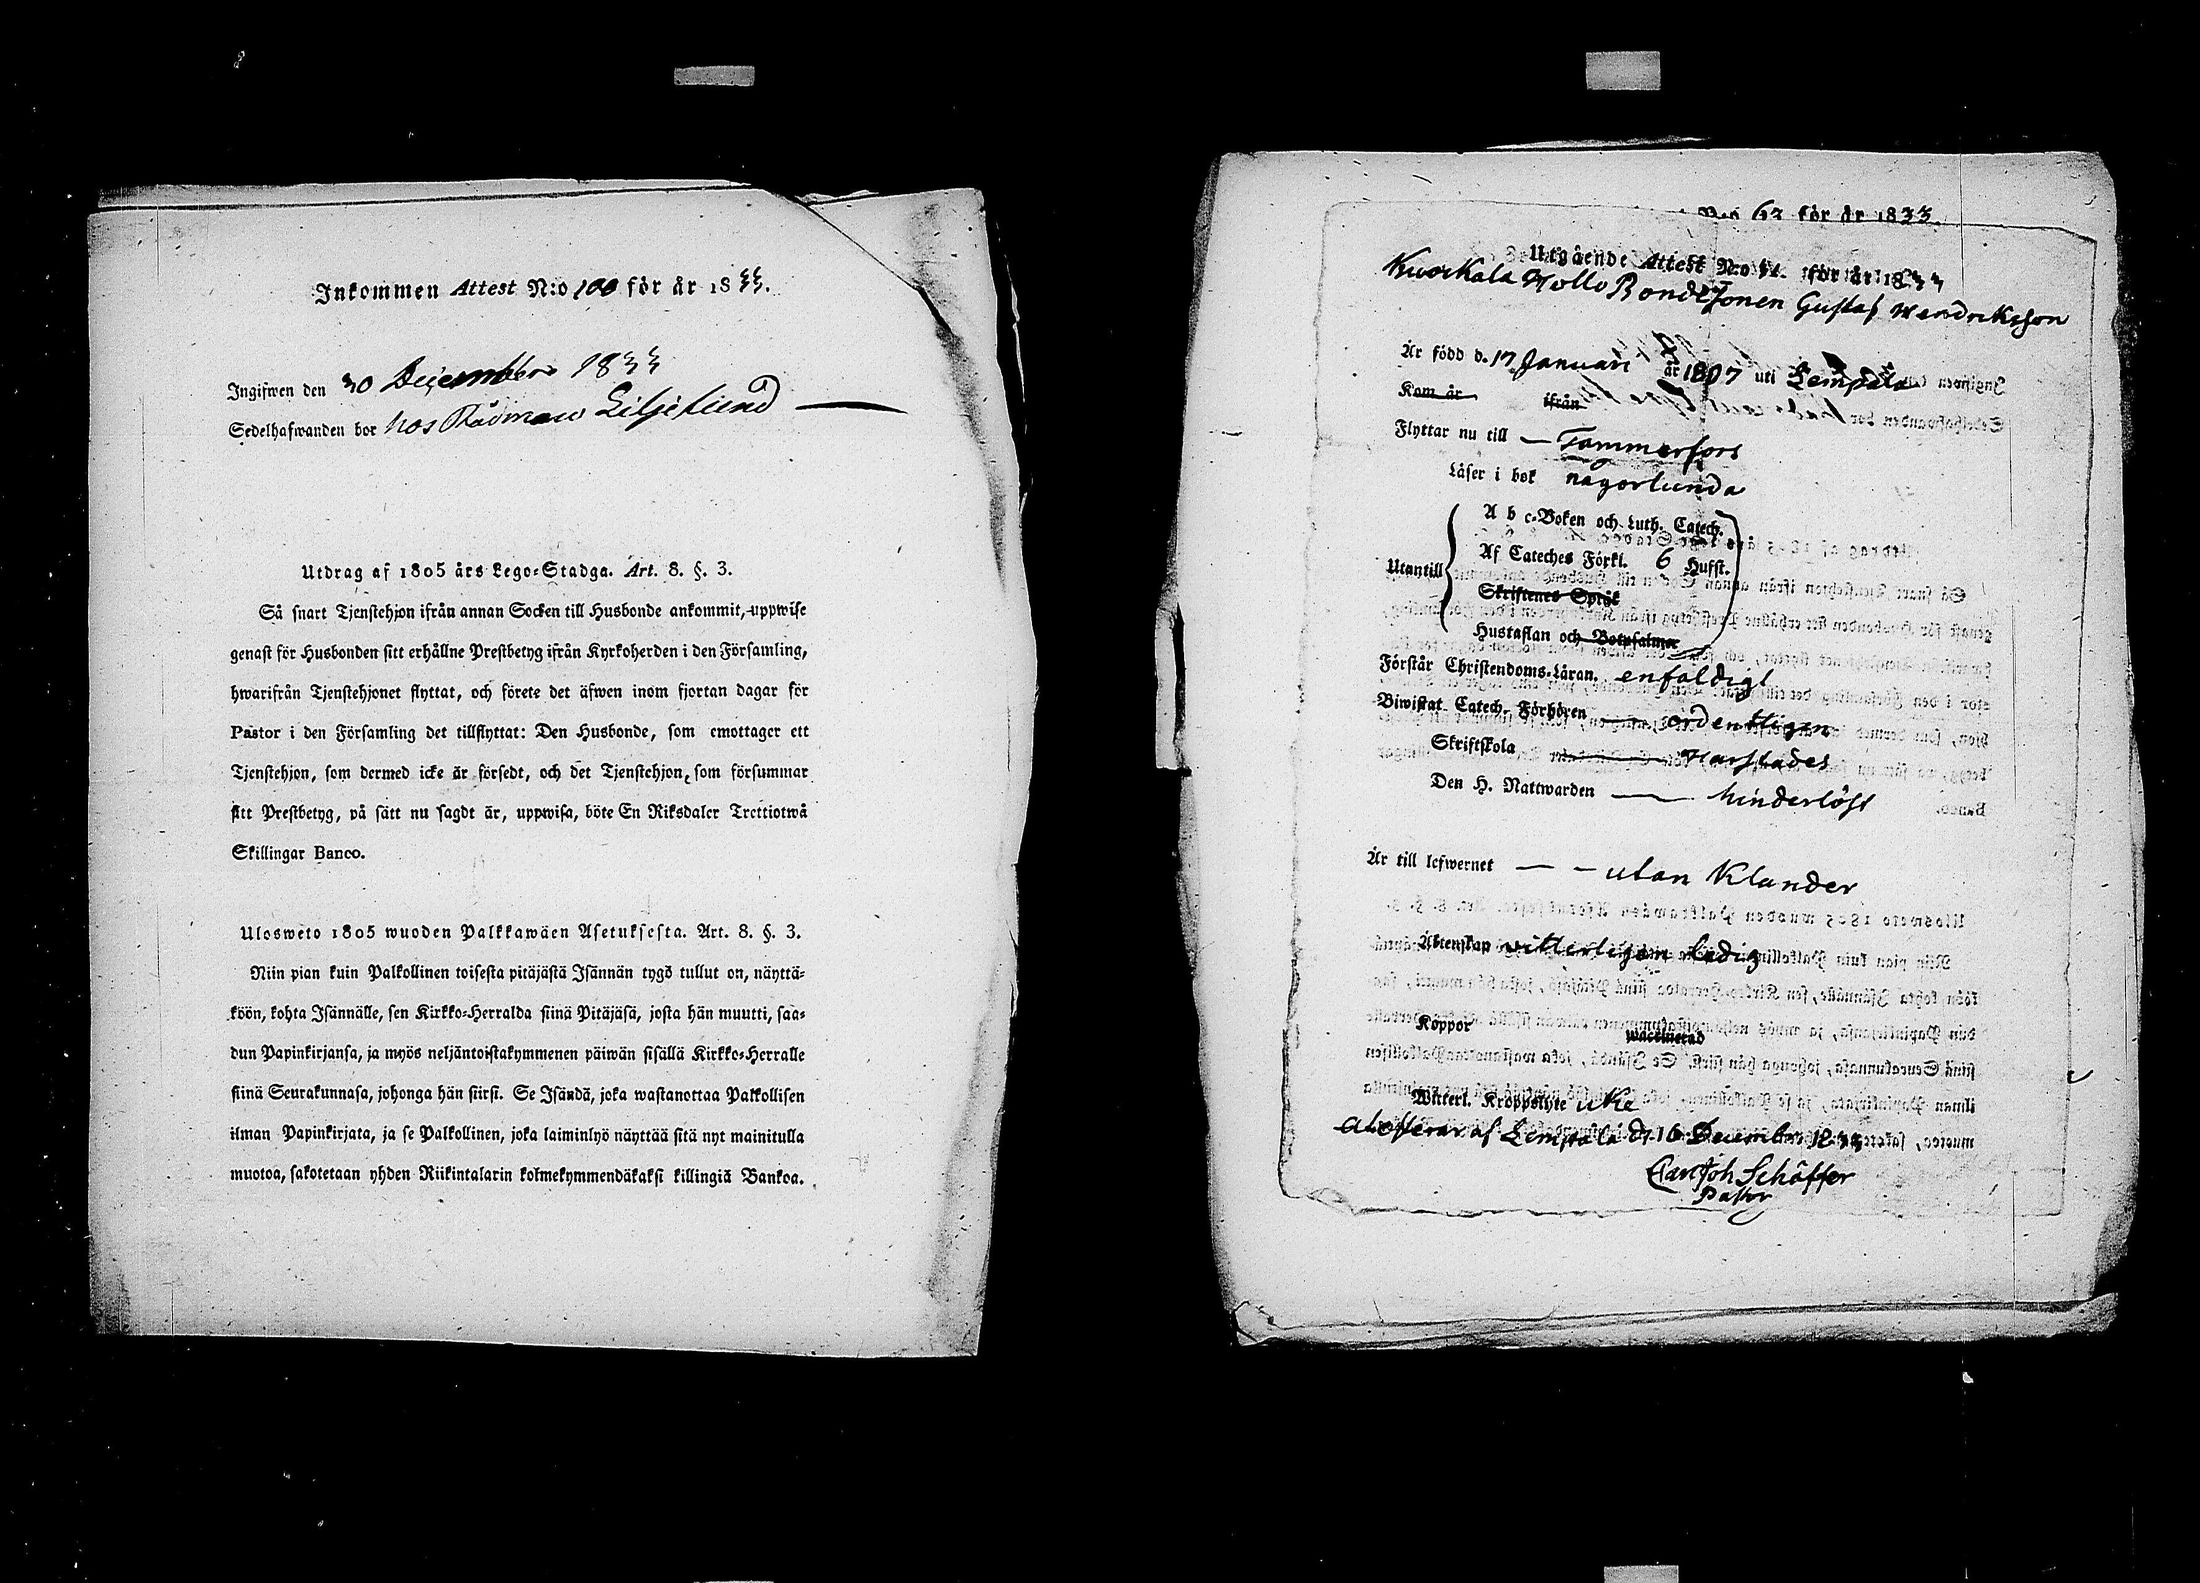 Inkommen Attest N:o 100 för år 1833.
Ingifwen den 30 December 1833
Sedelhafwanden bor hos Rådman Liljelund
Utdrag af 1805 års Lego-Stadga. Art. 8. §. 3.
Så snart Tjenstehjon ifrån annan Socken till Husbonde ankommit, uppwise
genast för Husbonden sitt erhållne Prestbetyg ifrån Kyrkoherden i den Församling,
hwarifrån Tjenstehjonet flyttat, och förete det äfwen inom fjortan dagar för
Pastor i den Församling det tillflyttat: Den Husbonde, som emottager ett
Tjenstehjon, som dermed icke är försedt, och det Tjenstehjon, som försummar
sitt Prestbetyg, på sätt nu sagdt är, uppwisa, böte En Riksdaler Trettiotwå
Skillingar Banco.
Ulosweto 1805 wuoden Palkkawäen Asetuksesta. Art. 8. §. 3.
Niin pian kuin Palkollinen toisesta pitäjästä Isännän tygö tullut on, näyttä-
köön, kohta Isännälle, sen Kirkko-Herralda siinä Pitäjäsä, josta hän muutti, saa-
dun Papinkirjansa, ja myös neljäntoistakymmenen päiwän sisällä Kirkko-Herralle
siinä Seurakunnasa, johonga hän siirsi. Se Isändä, joka wastanottaa Palkollisen
ilman Papinkirjata, ja se Palkollinen, joka laiminlyö näyttää sitä nyt mainitulla
muotoa, sakotetaan yhden Riikintalarin kolmekymmendäkaksi killingiä Bankoa.
N:o 63 för år 1833.
Utgående Attest N:o för år 1833
Kuokkala Hollo Bondesonen Gustaf Hendriksson
Är född d. 17 Januari år 1807 uti Lempälä
Kom år ifrån
Flyttar nu till Tammerfors
Läser i bok någorlunda
A b c-Boken och Luth. Catech.
Af Cateches Förkl. 6 Hufst.
Utantill
Skriftenes Språk
Hustaflan och Botpsalmer
Förstår Christendoms-Läran. enfaldigt
Biwistat Catech. Förhören ordentligen
Skriftskola
Den H. Nattwarden hinderlöst
Är till lefwernet utan Klander
Äktenskap witterligen ledig
Koppor
waccinerad
Witterl. Kroppslyte icke
attesterar af Lempälä d 16 December 1833
Carl Joh Schäffer
Pastor